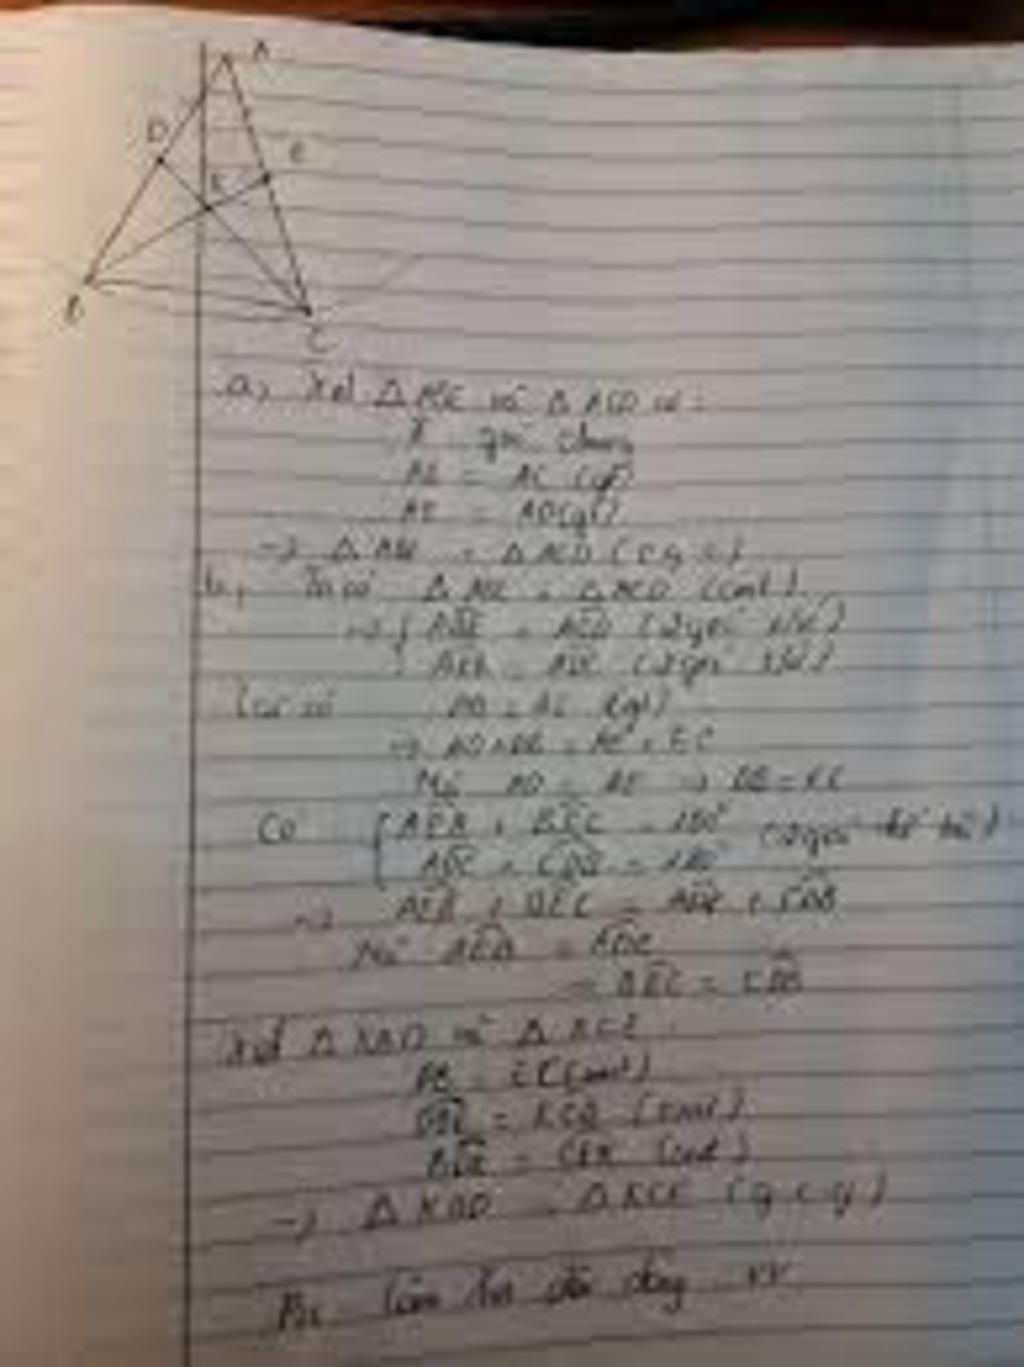 A
D
E
K
B
C
a, Xét △ ABE và △ ACD có:
Â góc chung
AB = AC (gt)
AE = AD (gt)
→ △ ABE = △ ACD (c.g.c)
b, Ta có △ ABE = △ ACD (cmt)
=> { ABE = ACD (2 góc t/ư)
AEB = ADC (2 góc t/ư)
Lại có AB = AC (gt)
=> AD + DB = AE + EC
Mà AD = AE => DB = EC
Có { AEB + BEC = 180° (2 góc kề bù)
ADC + CDB = 180°
=> AEB + BEC = ADC + CDB
Mà AEB = ADC
= BEC = CDB
Xét △ KBD và △ KCE
DB = EC (cmt)
= KCE (cmt)
BDK = CEK (cmt)
→ △ KBD = △ KCE (g.c.g)